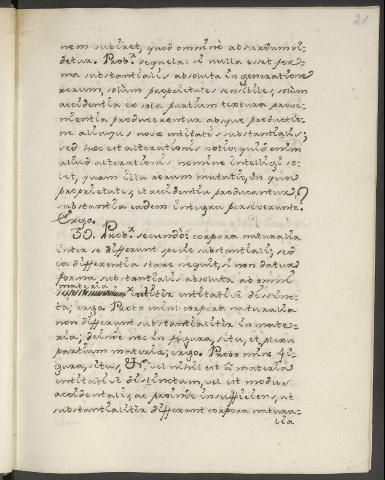 21
nem subiret, quod omninò absurdum vi-
detur. Prob.r sequela: si nulla esset for-
ma substantialis absoluta in generatione
rerum, solum proprietates sensibiles, solum
accidentia ex sola partium textura prove-
nientia producerentur absque productio-
ne alicujus novæ entitatis substantialis;
sed hæc est alterationis notio; quid enim
aliud alterationis nomine intelligi so-
let, quam illa rerum mutatio, in qua
proprietates, et accidentia producantur,
substantia eadem integra perseverante.
Ergo.
59. Prob.r secundò: corpora naturalia
inter se differunt specie substantiali; sed
ea differentia stare nequit, si non datur
forma substantialis absoluta ab omni
materia entitative distinc-
ta; ergo. Probo min: corpora naturalia
non differunt substantialiter in mate-
ria; deinde nec in figura, situ, et
partium materiæ; ergo. Probo min: fi-
gura, situs, &c. vel nihil est à materia
entitative distinctum, vel est modus
accidentalis, ac proinde insufficiens, ut
substantialiter differant corpora natura-
lia